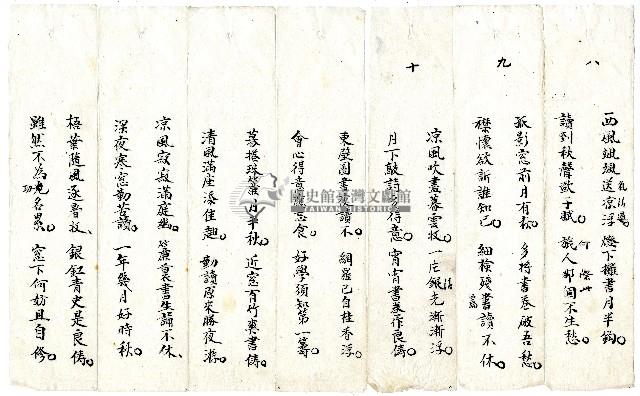 八
西風颯颯送涼浮 燈下攤書月半鈎
讀到秋聲歐子賦 旅人鄉國不生愁
九
孤影窓前月有秋 多将書卷啟吾愁
襟懷欲訴誰知己 細檢殘書讀不休
十
凉風吹盡暮雲收 一片銀光漸漸浮
月下敲詩多得意 宵宵書卷作良儔
東壁圖書讀不 細羅已自桂香浮
會心得意 忘食 好學須知第一籌
月半秋 近窓有竹與書儔
清風滿座湊佳趣 勤讀原來勝夜游
凉風寂寂滿庭幽 簾裏書生讀不休
深夜寒窓勤苦讀 一年幾月好時秋
梧葉随風逐晉收 銀釭青史是良儔
雖然不為功名累 窓下何妨且自修
國史館臺灣文獻館
TAIWAN HISTORICA